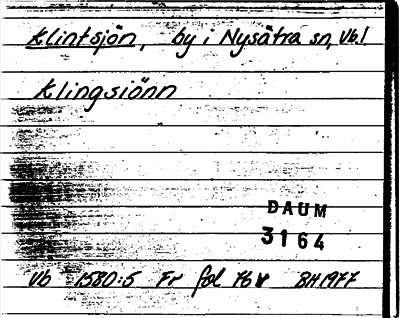 Klintsjön, by i Nysätra sn, Vb.l
Klingsiönn
DAUM
3164
Vb 1580:5 Fr fol 76v BH 1977